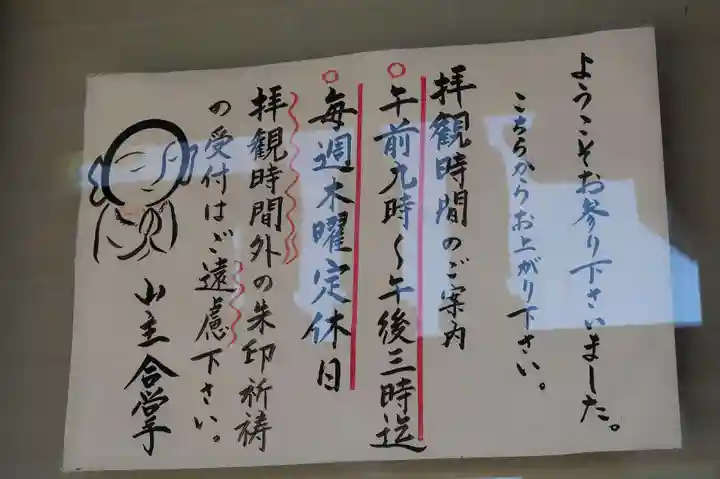 ようこそお参り下さいました。
こちらからお上がり下さい。
拝観時間のご案内
○午前九時〜午後三時迄
○毎週木曜定休日
拝観時間外の朱印祈祷
の受付はご遠慮下さい。
山主合掌